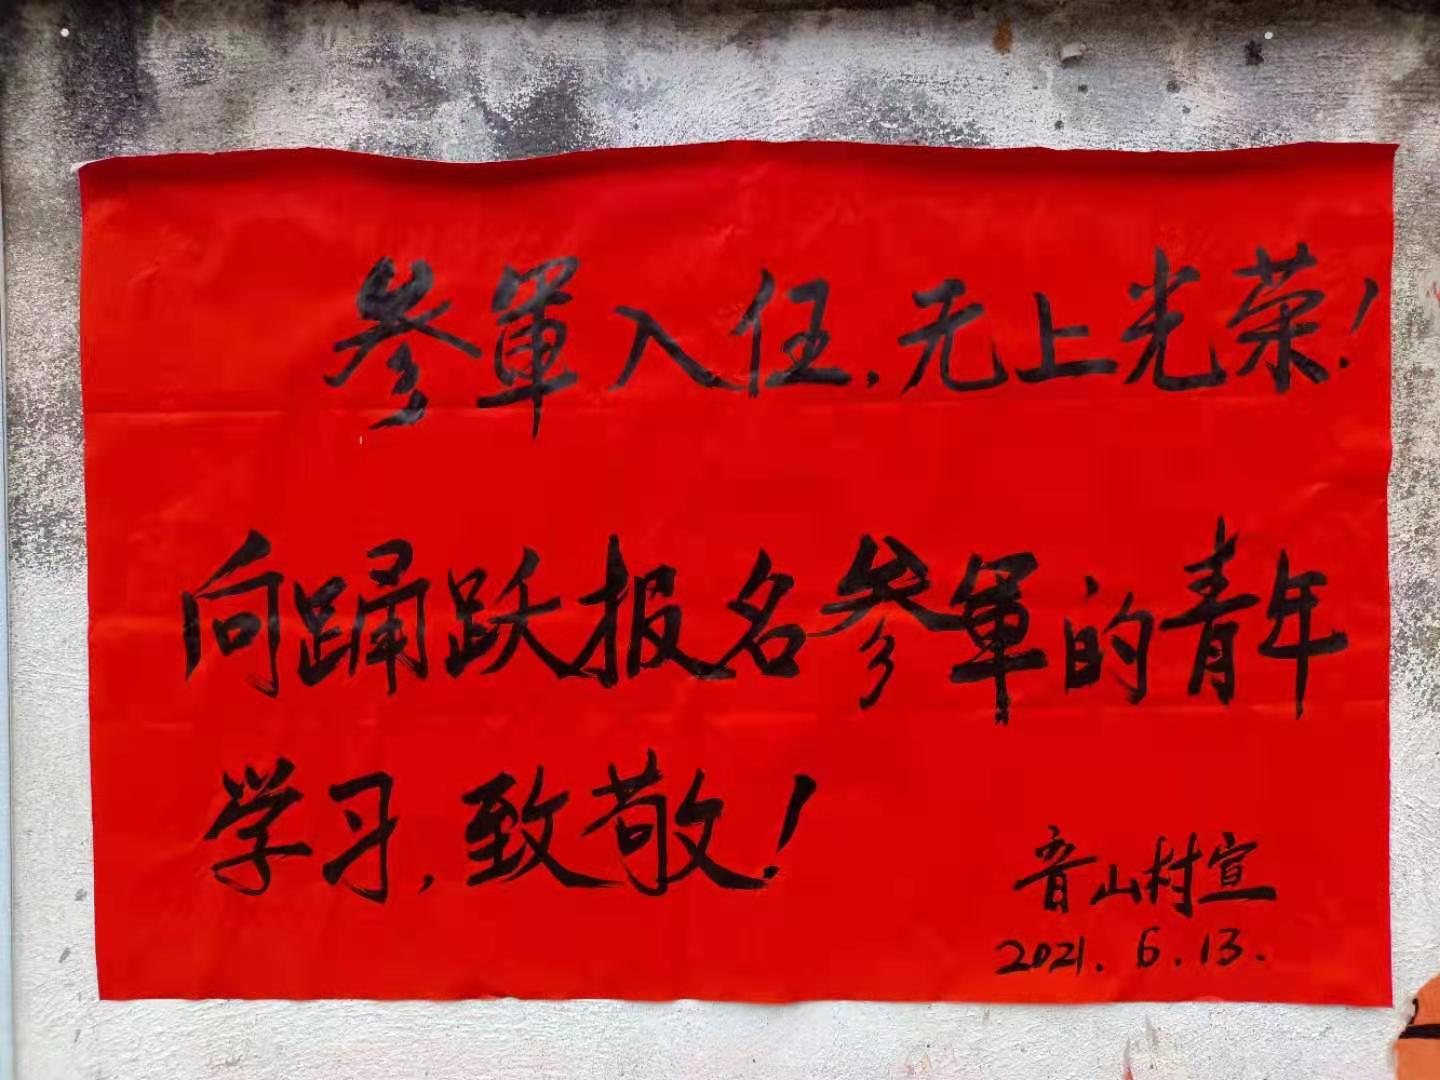 参軍入伍,无上光荣!
向踊跃报名参軍的青年
学习,致敬!
音山村宣
2021.6.13.